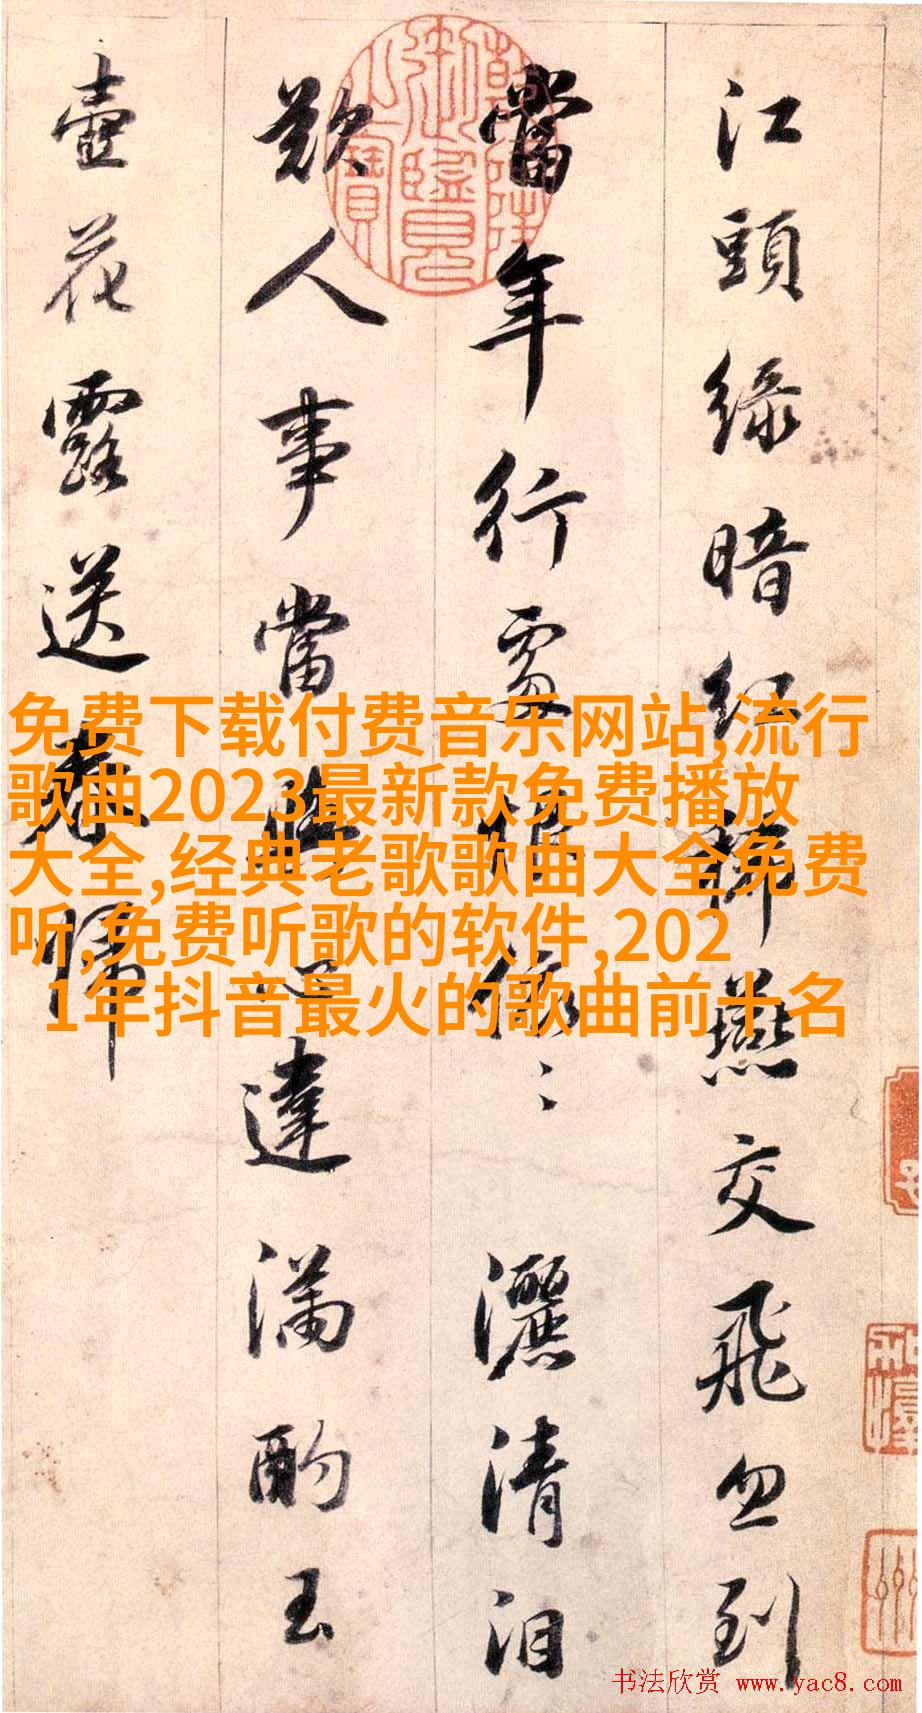 江頭綠暗紅稀燕交飛忽到
當年行處恨依〻灑清泪
歎人事當與心違滿酌玉
壺花露送春歸
乾隆御覽之寶
免费下载付费音乐网站,流行
歌曲2023最新款免费播放
大全,经典老歌歌曲大全免费
听,免费听歌的软件,202
1年抖音最火的歌曲前十名
书法欣赏 www.yac8.com